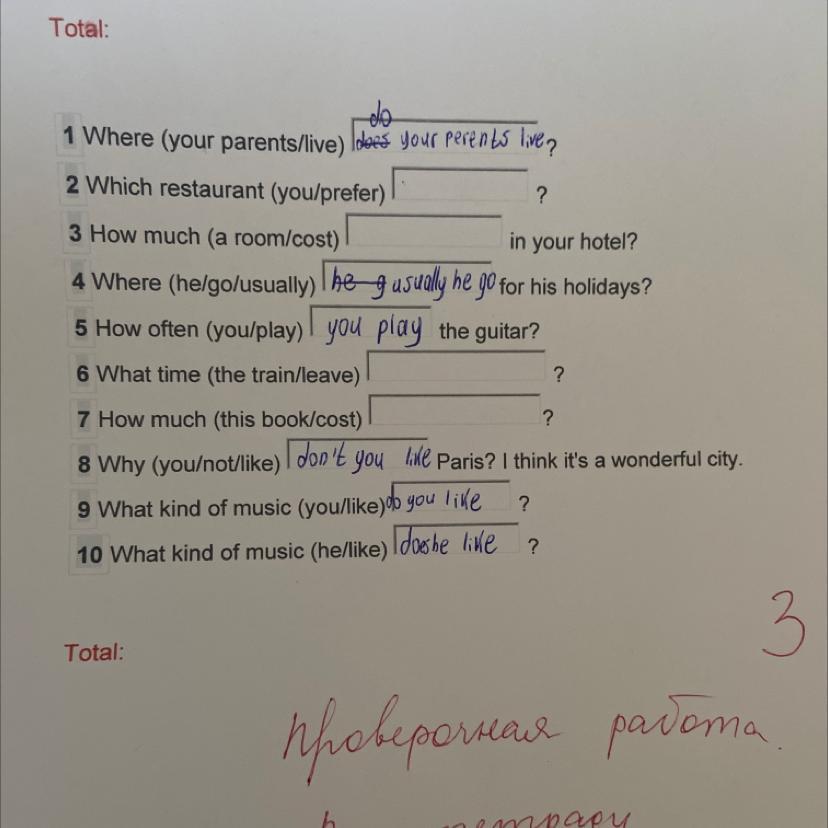 Total:
do
1 Where (your parents/live) does your perents live?
2 Which restaurant (you/prefer) ?
3 How much (a room/cost) in your hotel?
4 Where (he/go/usually) he g usually he go for his holidays?
5 How often (you/play) you play the guitar?
6 What time (the train/leave) ?
7 How much (this book/cost) ?
8 Why (you/not/like) don't you like Paris? I think it's a wonderful city.
9 What kind of music (you/like) do you like ?
10 What kind of music (he/like) does he like ?
3
Total:
Проверочная работа.